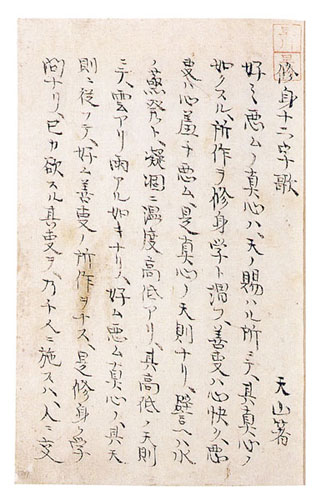 修身十二字歌
天山著
好ミ悪ムノ真心ハ、天ノ賜ハル所ニテ、其真心ノ
如クスル、所作ヲ修身学ト謂フ、善事ハ心快ク、悪
事ハ心羞チ悪ム、是真心ノ天則ナリ、譬ヘハ水
ノ蒸発ト、凝涸ニ温度高低アリ、其高低ノ天則
ニテ、雲アリ雨アル如キナリ、好ム悪ムノ真心ノ、其天
則ニ従フテ、好ム善事ノ所作ヲナス、是修身ノ学
問ナリ、已カ欲スル其事ヲ、乃チ人ニ施スハ、人ニ交